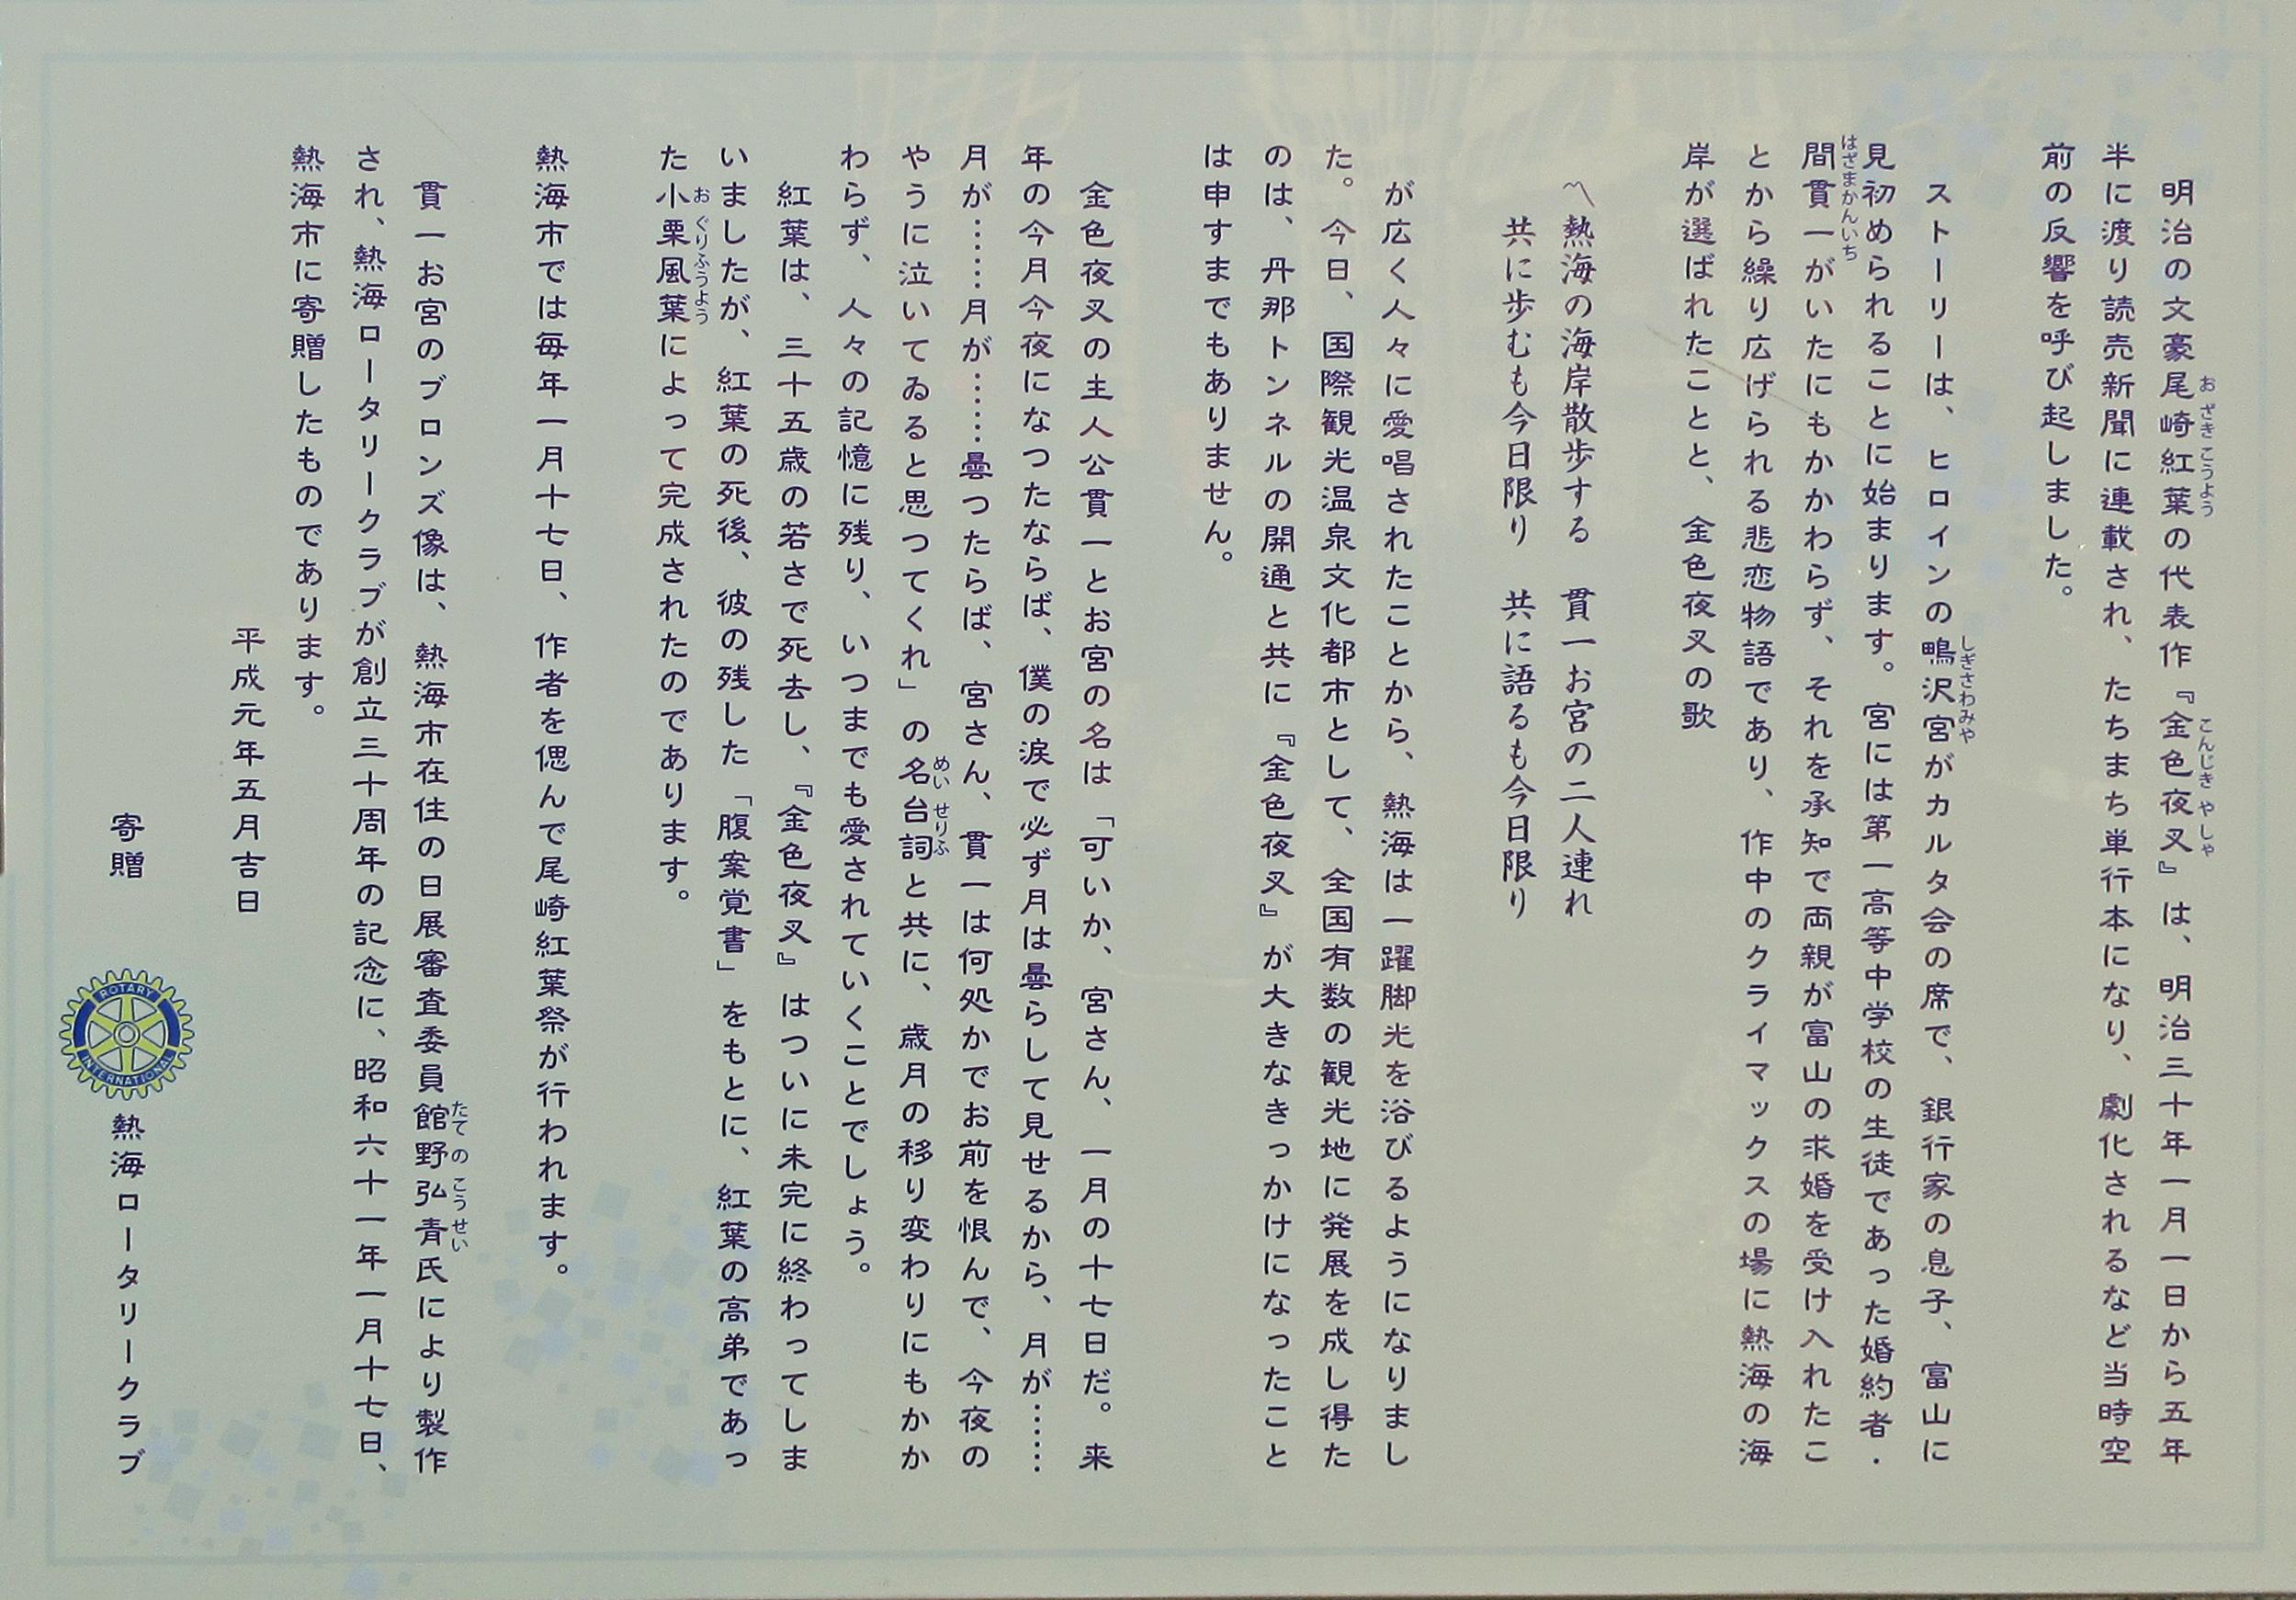 明治の文豪尾崎紅葉の代表作『金色夜叉』は、明治三十年一月一日から五年
半に渡り読売新聞に連載され、たちまち単行本になり、劇化されるなど当時空
前の反響を呼び起しました。
ストーリーは、ヒロインの鴫沢宮がカルタ会の席で、銀行家の息子、富山に
見初められることに始まります。宮には第一高等中学校の生徒であった婚約者・
間貫一がいたにもかかわらず、それを承知で両親が富山の求婚を受け入れたこ
とから繰り広げられる悲恋物語であり、作中のクライマックスの場に熱海の海
岸が選ばれたことと、金色夜叉の歌
〽熱海の海岸散歩する 貫一お宮の二人連れ
共に歩むも今日限り 共に語るも今日限り
が広く人々に愛唱されたことから、熱海は一躍脚光を浴びるようになりまし
た。今日、国際観光温泉文化都市として、全国有数の観光地に発展を成し得た
のは、丹那トンネルの開通と共に『金色夜叉』が大きなきっかけになったこと
は申すまでもありません。
金色夜叉の主人公貫一とお宮の名は「可いか、宮さん、一月の十七日だ。来
年の今月今夜になつたならば、僕の涙で必ず月は曇らして見せるから、月が……
月が……月が……曇つたらば、宮さん、貫一は何処かでお前を恨んで、今夜の
やうに泣いてゐると思つてくれ」の名台詞と共に、歳月の移り変わりにもかか
わらず、人々の記憶に残り、いつまでも愛されていくことでしょう。
紅葉は、三十五歳の若さで死去し、『金色夜叉』はついに未完に終わってしま
いましたが、紅葉の死後、彼の残した「腹案覚書」をもとに、紅葉の高弟であっ
た小栗風葉によって完成されたのであります。
熱海市では毎年一月十七日、作者を偲んで尾崎紅葉祭が行われます。
貫一お宮のブロンズ像は、熱海市在住の日展審査委員館野弘青氏により製作
され、熱海ロータリークラブが創立三十周年の記念に、昭和六十一年一月十七日、
熱海市に寄贈したものであります。
平成元年五月吉日
寄贈 ROTARY INTERNATIONAL 熱海ロータリークラブ
おざきこうよう
こんじきやしゃ
しぎさわみや
はざまかんいち
めいせりふ
おぐりふうよう
たてのこうせい